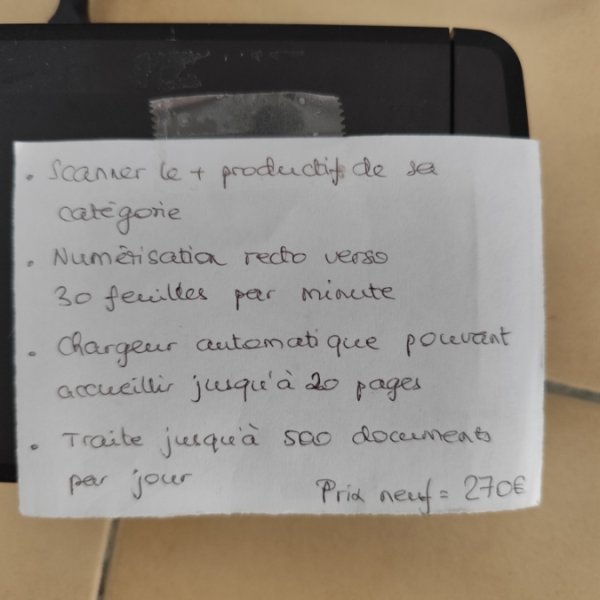 • Scanner le + productif de sa
catégorie
• Numérisation recto verso
30 feuilles par minute
• Chargeur automatique pouvant
accueillir jusqu'à 20 pages
• Traite jusqu'à 500 documents
par jour
Prix neuf = 270€